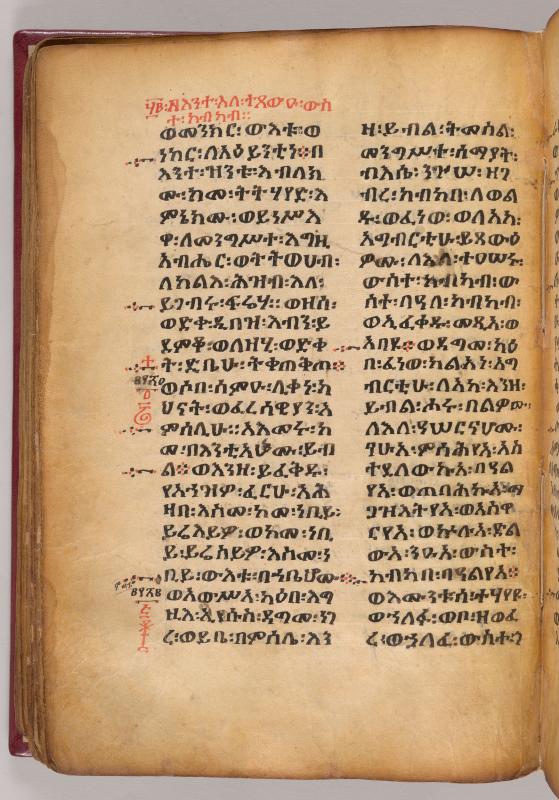 ፵፪፡በእንተ፡እለ፡ተጸውዑ፡ውስ
ተ፡ከብካብ፡፡
ወመንክር፡ውእቱ፡ወ
ነክር፡ለአዕይንቲነ፨በ
እንተ፡ዝንቱ፡እብለክ
ሙ፡ከመ፡ትትሃየድ፡እ
ምኔክሙ፡ወይነሥእ
ዋ፡ለመንግሥተ፡እግዚ
አብሔር፡ወትትወሀብ፡
ለካልእ፡ሕዝብ፡እለ፡
ይገብሩ፡ፍሬሃ፡፡ወዘሰ፡
ወድቀ፡ዲበ፡ዝ፡እብን፡ይ
ደምቆ፡ወለዝሂ፡ወድቀ
ት፡ድቤሁ፡ትቀጠቅጦ፨
ወሶበ፡ሰምዑ፡ሊቀነ፡ካ
ህናት፡ወፈረሰዊያን፡አ
ምሳሊሁ፡፡አእመሩ፡ከ
መ፡በእንቲአሆሙ፡ይብ
ል፨ወእንዘ፡ይፈቅዱ፡
የአኀዝዎ፡ፈርሁ፡እሕ
ዛበ፡እስመ፡ከመ፡ነቢይ፡
ይሬእይዎ፡ወከመ፡ነቢ
ይ፡ይሬስይዎ፡እስመ፡ነ
ቢይ፡ውእቱ፡በኀቤሆሙ፨
ወአውሥአ፡ካዕበ፡እግ
ዚእ፡ኢየሱስ፡ደግመ፡ነገ
ረ፡ወይቤ፡በምሳሌ፡እን
ዘ፡ይብል፡ትመስል፡
መንግሥተ፡ሰማያት፡
ብእሴ፡ንጉሠ፡ዘገ
ብረ፡ከብካበ፡ለወል
ዱ፡ወፈነወ፡ወለአከ፡
አግብርቲሁ፡ይጸውዕ
ዎሙ፡ለእለ፡ተዐሠሩ፡
ውስተ፡ከብካብ፡ው
ስተ፡በዓለ፡ከብካብ፡
ወኢፈቀዱ፡መጺአ፡ወ
አበዩ፨ወደገመ፡ካዕ
በ፡ፈነወ፡ካልአነ፡አግ
ብርቲሁ፡ለአከ፡እንዘ፡
ይብል፡ሑሩ፡በልዎሙ፡
ለእለ፡ዓሠርናሆሙ፡
ናሁኣ፡ምሳሕየኣ፡አስ
ተደለውኩኣ፡በዓል
የኣ፡ወጠባሕኩኣ፡ማ
ጋዝእትየኣ፡ወአስዋ
ርየኣ፡ወኵሉኣ፡ድል
ውኣ፡ንዑኣ፡ውስተ፡
ከብካበ፡በዓልየኣ፨
ወእሙንቱሰ፡ተሃየዩ፡
ወኀለፉ፡ወቦ፡ዘወፈ
ረ፡ወኀለፈ፡ውስተ፡ገ